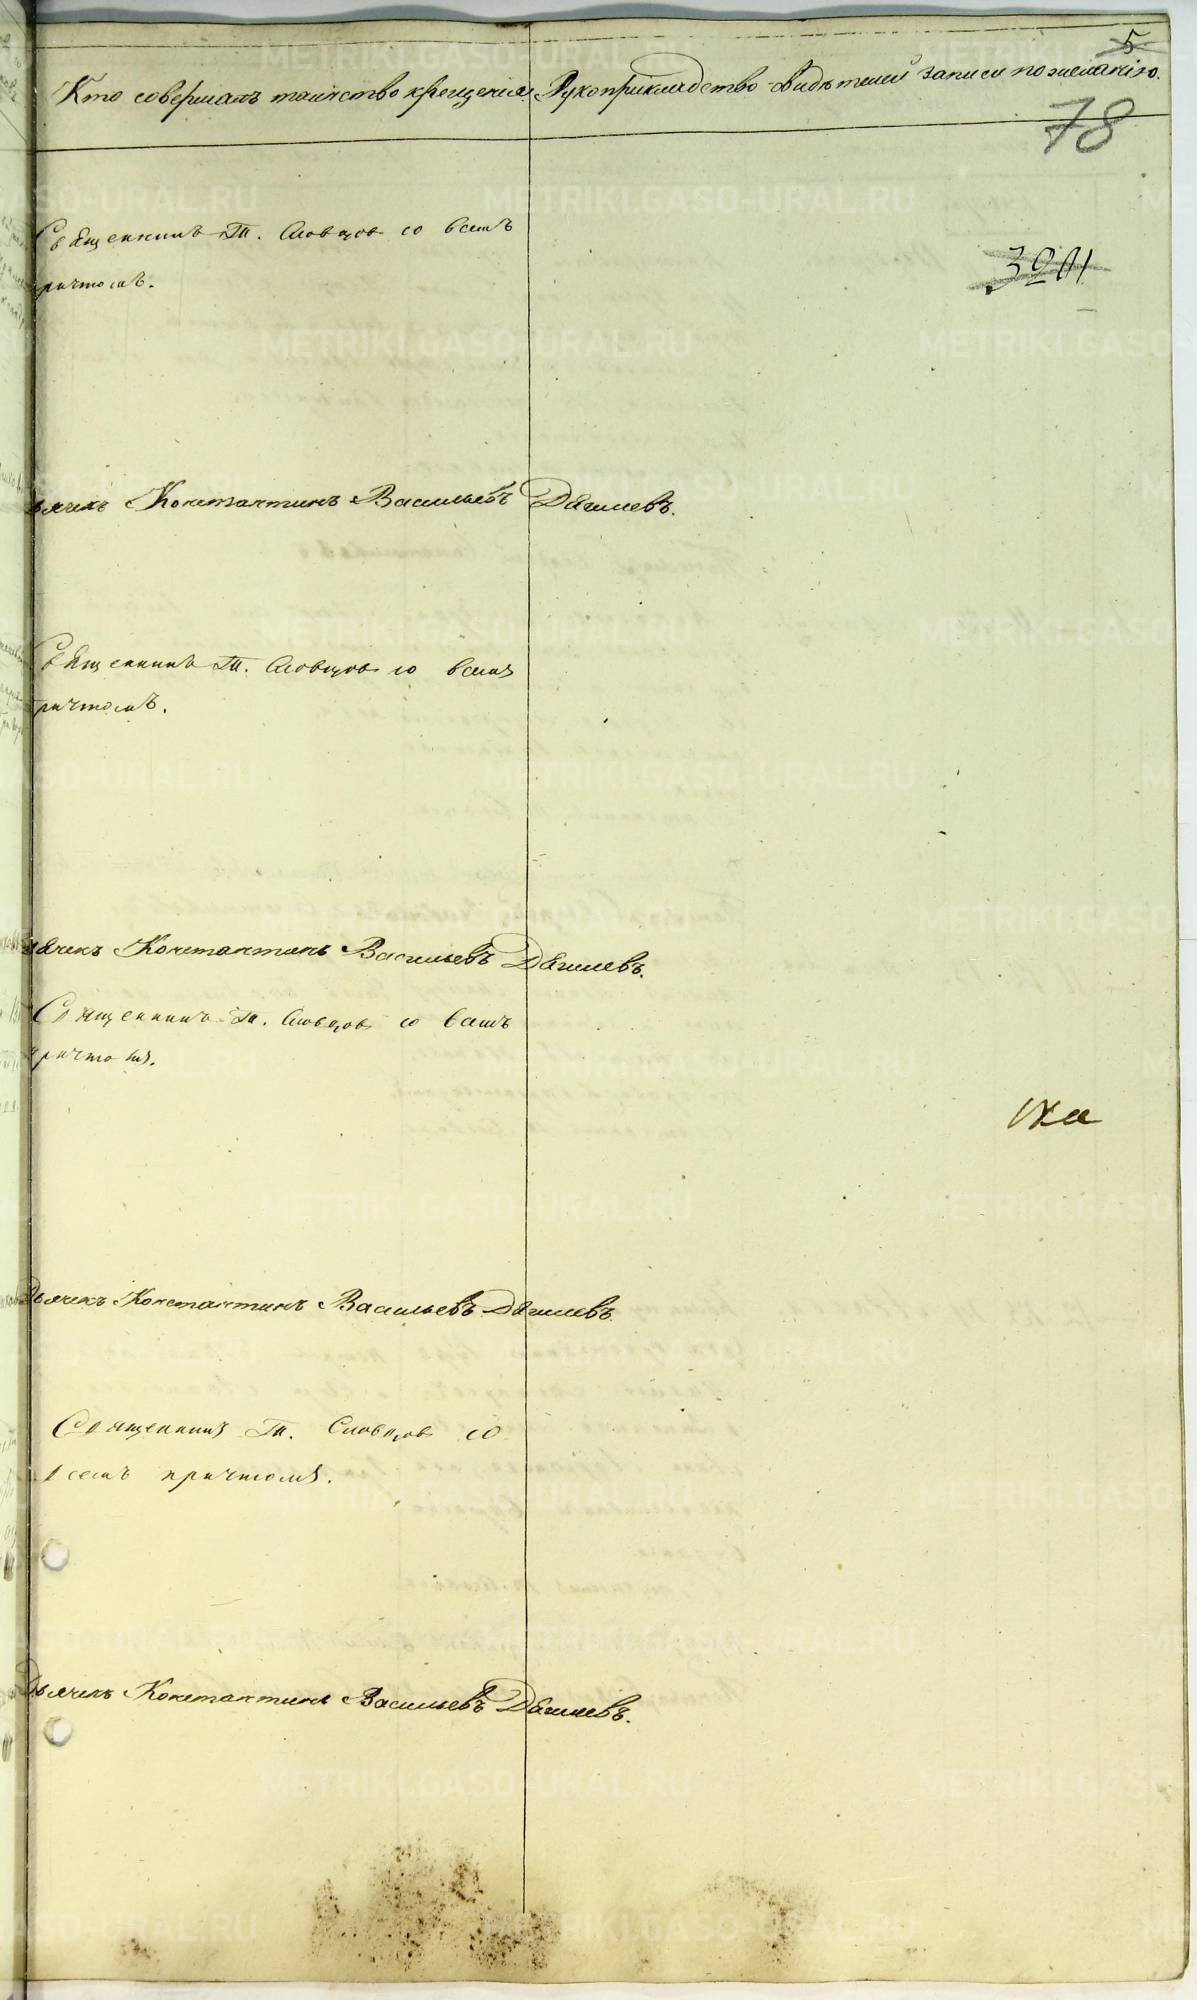 5
Кто совершалъ таинство крещенія Рукоприкладство свидѣтелей записи по желанію.
78
Священникъ Т. Словцов со всемъ
причтомъ.
Дьячекъ Константинъ Васильевъ Дягилевъ.
Священникъ Т. Словцов со всемъ
причтомъ.
Дьячекъ Константинъ Васильевъ Дягилевъ.
Священникъ Т. Словцов со всемъ
причтомъ.
Дьячекъ Константинъ Васильевъ Дягилевъ.
Священникъ Т. Словцов со
всемъ причтомъ.
Дьячекъ Константинъ Васильевъ Дягилевъ.
METRIKI.GASO-URAL.RU